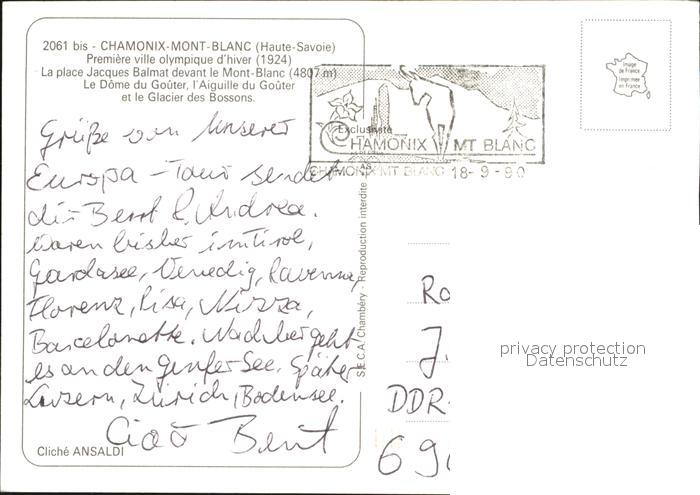 2061 bis - CHAMONIX-MONT-BLANC (Haute-Savoie)
Première ville olympique d'hiver (1924)
La place Jacques Balmat devant le Mont-Blanc (4807 m)
Le Dôme du Goûter, l'Aiguille du Goûter
et le Glacier des Bossons.
Grüße von unserer
Europa-Tour sendet
dir Bernt & Andrea.
Waren bisher in Tirol,
Gardasee, Venedig, Ravenna,
Florenz, Pisa, Nizza,
Barcelonette. Nachher geht
es an den Genfer See. Später
Luzern, Zürich, Bodensee.
Ciao Bernt
Cliché ANSALDI
Exclusivité
S.E.C.A. Chambéry - Reproduction interdite
CHAMONIX MT BLANC
CHAMONIX MT BLANC 18-9-90
Image
de France
Imprimée
en France
Ro
J.
DDR-
69
privacy protection
Datenschutz